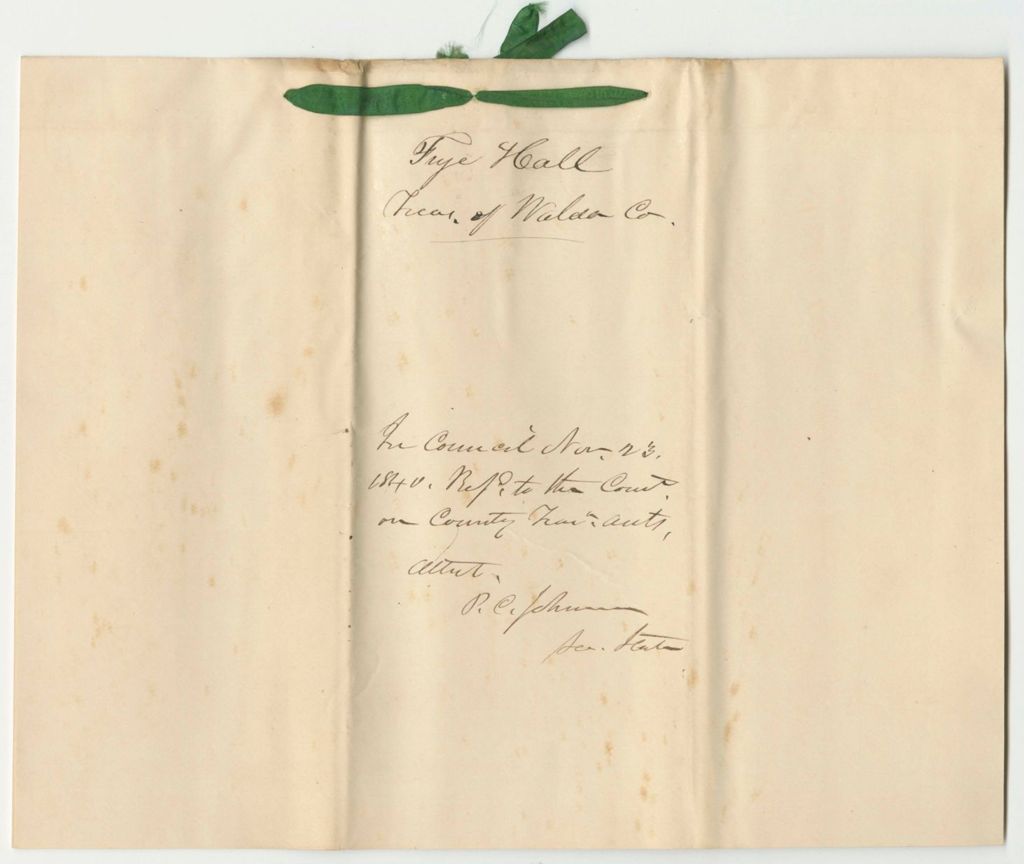 Frye Hall
Treas. of Waldo Co.
In Council Nov. 23.
1840. Refd. to the Comt.
on County Treas. accts,
Attest.
P. C. Johnson
Sec. State